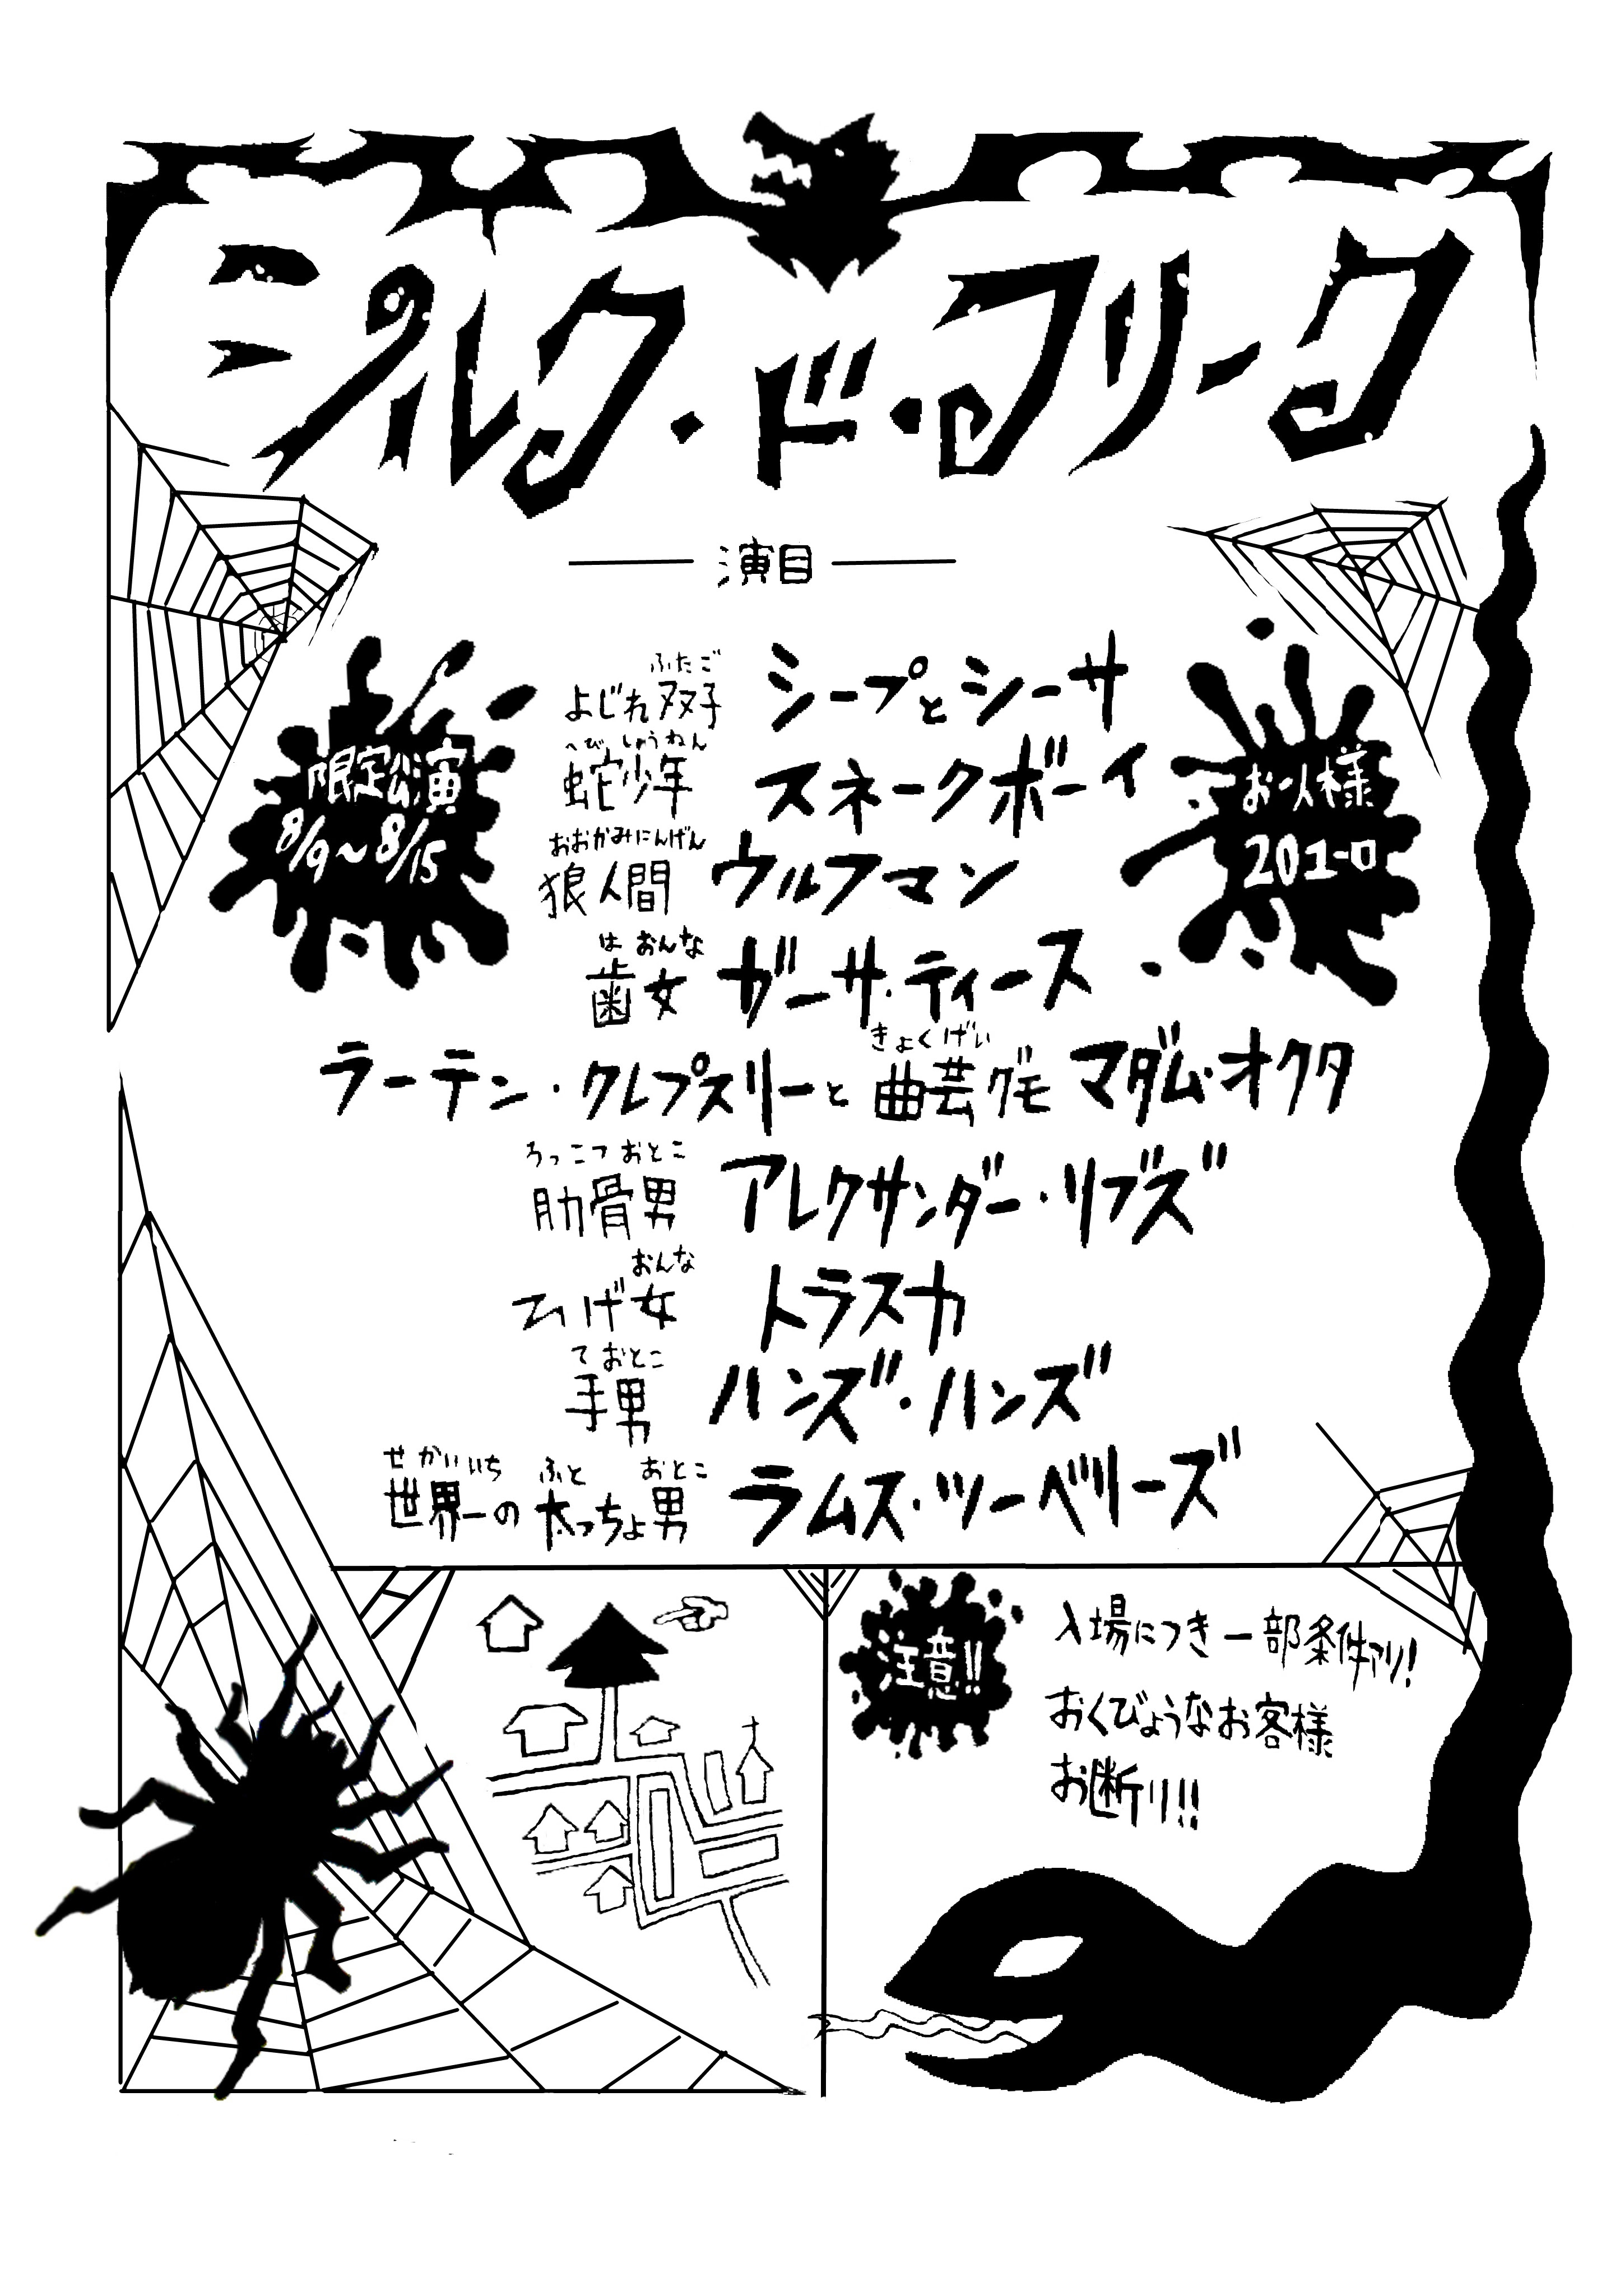 シルク・ド・フリーク
演目
限定公演
8/9〜8/15
お一人様
20ユーロ
ふたご
よじれ双子 シープとシーサ
へびしょうねん
蛇少年 スネークボーイ
おおかみにんげん
狼人間 ウルフマン
は おんな
歯女 ガーサ・ティース
きょくげい
ラーテン・クレプスリーと曲芸グモ マダム・オクタ
ろっこつ おとこ
肋骨男 アレクサンダー・リブズ
おんな
ひげ女 トラスカ
て おとこ
手男 ハンズ・ハンズ
せかいいち ふと おとこ
世界一の太っちょ男 ラムス・ツーベリーズ
注意!!
入場につき一部条件アリ!
おくびょうなお客様
お断り!!